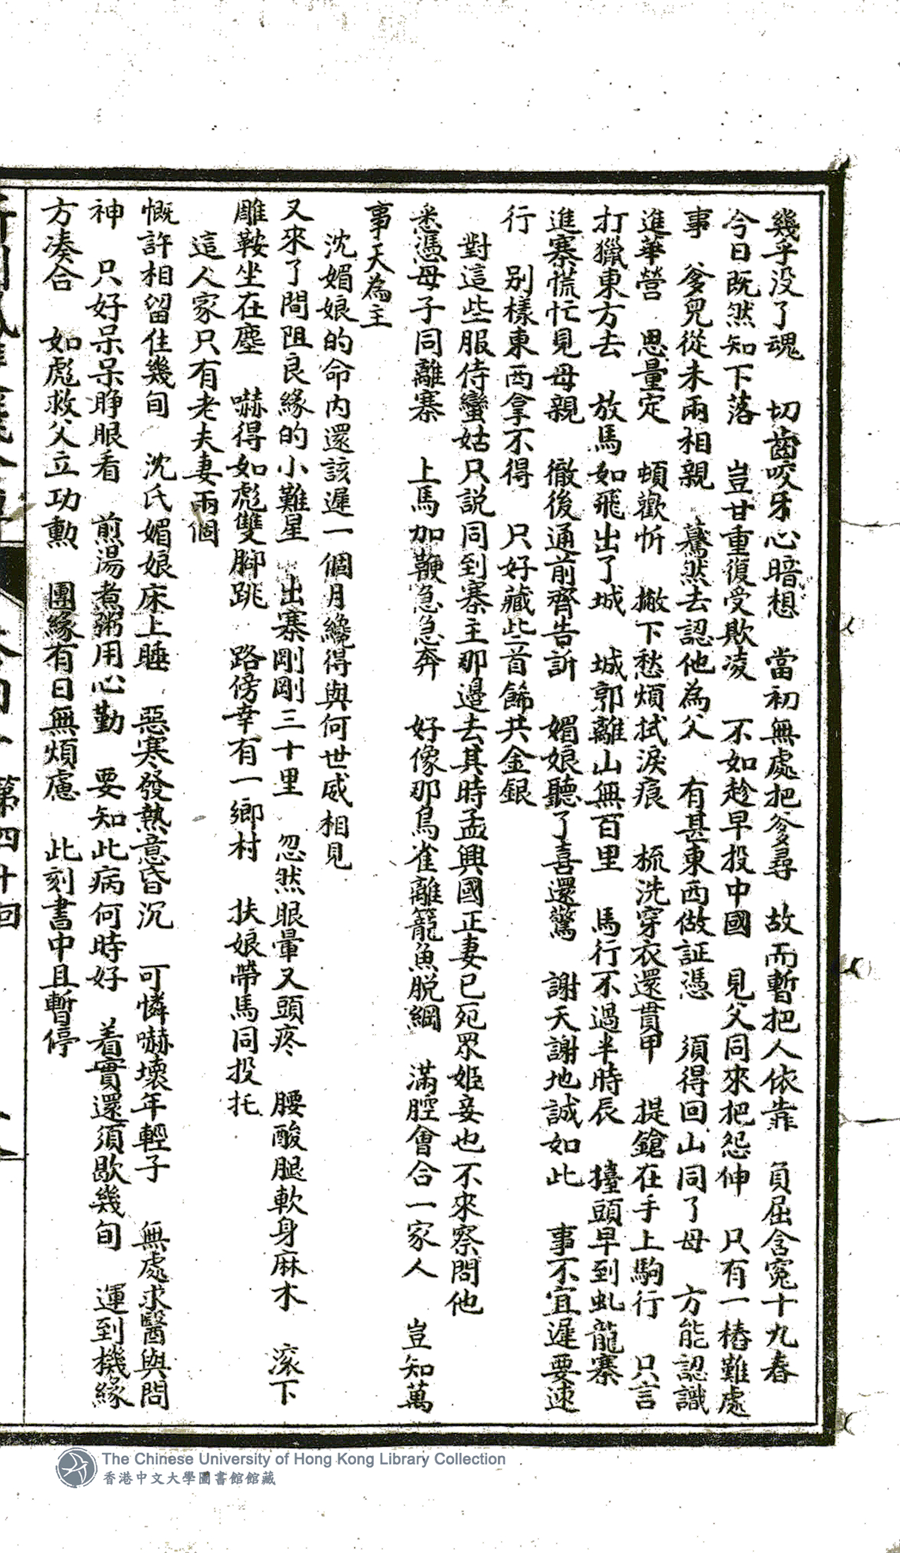 幾乎没了魂　切齒咬牙心暗想　當初無處把爹尋　故而暫把人依靠　負屈含冤十九春
今日既然知下落　豈甘重復受欺凌　不如趁早投中國　見父同來把怨伸　只有一樁難處
事　爹兒從未兩相親　驀然去認他為父　有甚東西做証憑　須得回山同了母　方能認識
進華營　思量定　頓歡忻　撇下愁煩拭淚痕　梳洗穿衣還貫甲　提鎗在手上駒行　只言
打獵東方去　放馬如飛出了城　城郭離山無百里　馬行不過半時辰　擡頭早到虬龍寨
進寨慌忙見母親　徹後通前齊告訴　媚娘聽了喜還驚　謝天謝地誠如此　事不宜遲要速
行　别樣東西拿不得　只好藏些首餙共金銀
對這些服侍蠻姑只説同到寨主那邊去其時孟興國正妻已死眾姬妾也不來察問他
悉憑母子同離寨　上馬加鞭急急奔　好像那鳥雀離籠魚脱網　滿腔會合一家人　豈知萬
事天為主
沈媚娘的命内還該遲一個月纔得與何世威相見
又來了間阻良緣的小難星　出寨剛剛三十里　忽然眼暈又頭疼　腰酸腿軟身麻木　滚下
雕鞍坐在塵　嚇得如彪雙脚跳　路傍幸有一鄉村　扶娘帶馬同投托
這人家只有老夫妻兩個
慨許相留住幾旬　沈氏媚娘床上睡　惡寒發熱意昏沉　可憐嚇壞年輕子　無處求醫與問
神　只好呆呆睜眼看　煎湯煮粥用心勤　要知此病何時好　着實還須歇幾旬　運到機緣
方凑合　如彪救父立功勲　團緣有日無煩慮　此刻書中且暫停
第四十回
The Chinese University of Hong Kong Library Collection
香港中文大學圖書館館藏